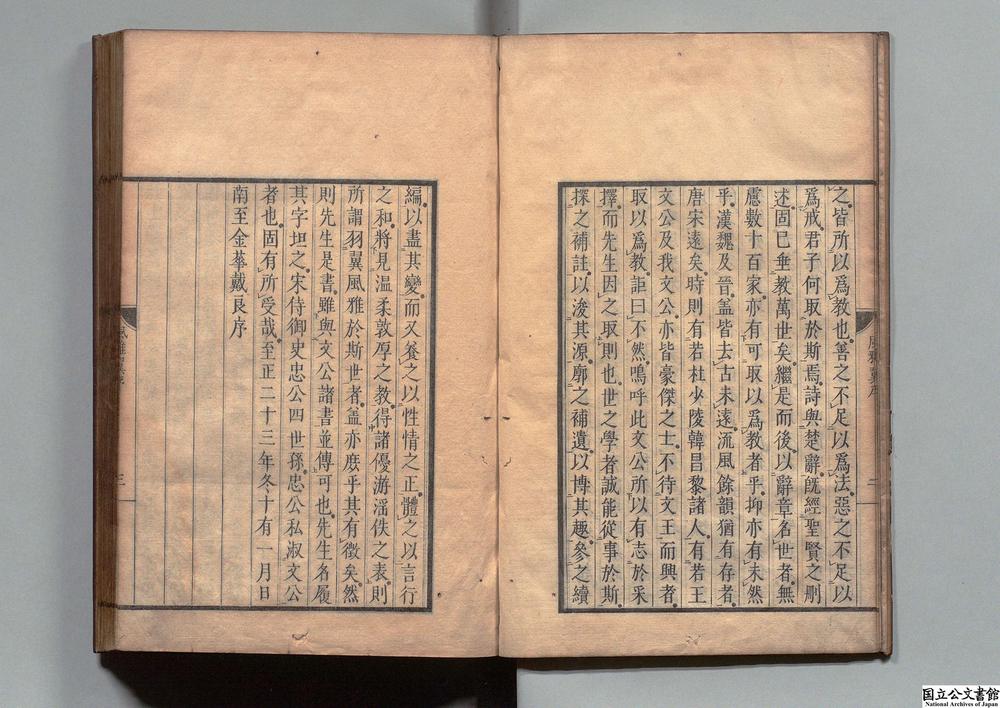 之皆所以爲教也善之不足以爲法惡之不足以
爲戒君子何取於斯焉詩與楚辭旣經聖賢之刪
述固已垂教萬世矣繼是而後以辭章名世者無
慮數十百家亦有可取以爲教者乎抑亦有未然
乎漢魏及晉盖皆去古未遠流風餘韻猶有存者
唐宋遠矣時則有若杜少陵韓昌黎諸人有若王
文公及我文公亦皆豪傑之士不待文王而興者
取以爲教詎曰不然嗚呼此文公所以有志於采
擇而先生因之取則也世之學者誠能從事於斯
探之補註以浚其源廓之補遺以博其趣參之續
二
編以盡其變而又養之以性情之正體之以言行
之和將見温柔敦厚之教得諸優游滛佚之表則
所謂羽翼風雅於斯世者盖亦庶乎其有徴矣然
則先生是書雖與文公諸書並傳可也先生名履
其字坦之宋侍御史忠公四世孫忠公私淑文公
者也固有所受哉至正二十三年冬十有一月日
南至金華戴良序
三
国立公文書館
National Archives of Japan